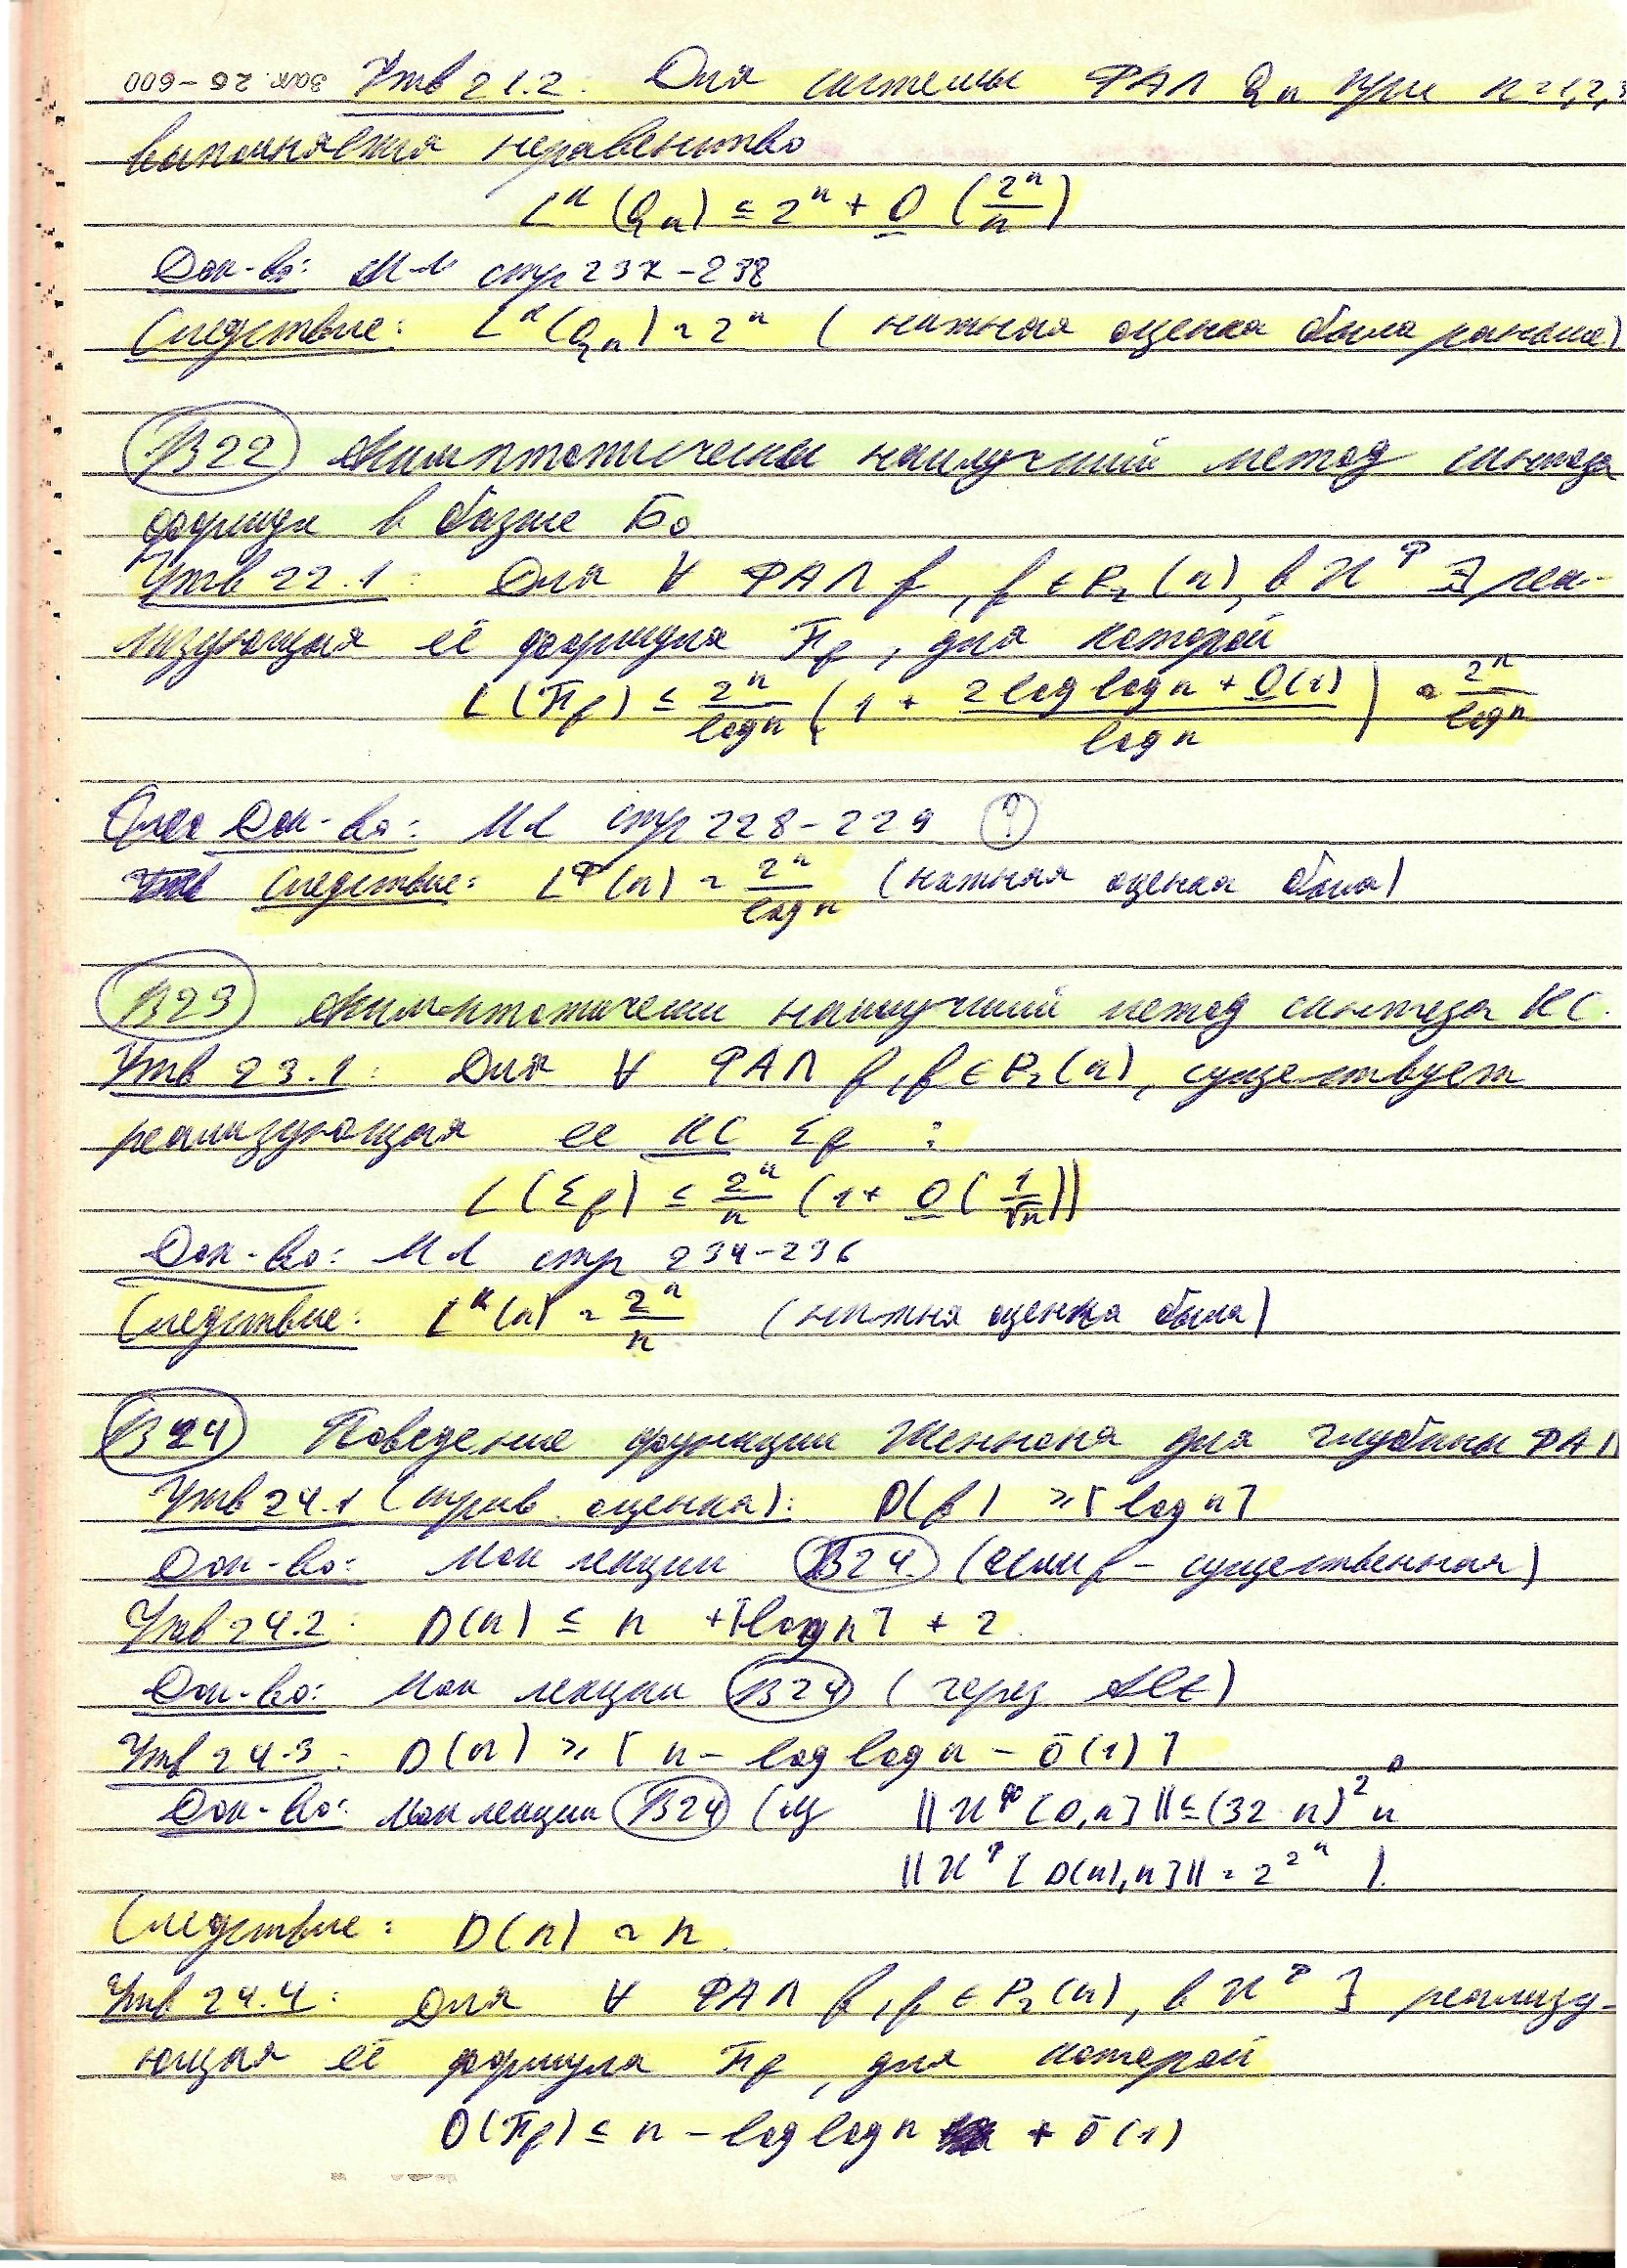 Зак. 26-600 Утв 21.2. Для системы ФАЛ Qn при n=1,2,3
выполняется неравенство
L^K (Qn) ≤ 2^n + O (2^n/n)
Док-во: М-Л стр 237-238
Следствие: L^K (Qn) ~ 2^n ( нижняя оценка была раньше)
В22 Асимптотически наилучший метод синтеза
формул в базисе Б0
Утв 22.1: Для ∀ ФАЛ f, f ∈ P2(n), в U^Ф ∃ реа-
лизующая её формула Ff, для которой
L(Ff) ≤ 2^n/log n (1 + (2 log log n + O(1))/log n) ~ 2^n/log n
Док-во: МЛ стр 228-229 !
Следствие: L^Ф(n) ~ 2^n/log n (нижняя оценка была)
В23 Асимптотически наилучший метод синтеза КС.
Утв 23.1: Для ∀ ФАЛ f, f ∈ P2(n), существует
реализующая ее КС Σf :
L(Σf) ≤ 2^n/n (1+ O(1/√n))
Док-во: МЛ стр 234-236
Следствие: L^K(n) ~ 2^n/n (нижня оценка была)
В24 Поведение функции Шеннона для глубины ФАЛ
Утв 24.1 (трив. оценка): D(f) ≥ ⌈log n⌉
Док-во: Мои лекции В24. (если f – существенная)
Утв 24.2: D(n) ≤ n + ⌈log n⌉ + 2
Док-во: Мои лекции В24 (через
Утв 24.3: D(n) ≥ ⌈n – log log n – ō(1)⌉
Док-во: Мои лекции В24 ( ||U^Ф[D,n]|| ≤ (32·n)^2^D
||U^Ф[D(n),n]|| = 2^2^n ).
Следствие: D(n) ~ n.
Утв 24.4: Для ∀ ФАЛ f, f ∈ P2(n), в U^Ф ∃ реализу-
ющая её формула Ff, для которой
D(Ff) ≤ n – log log n + ō(1)